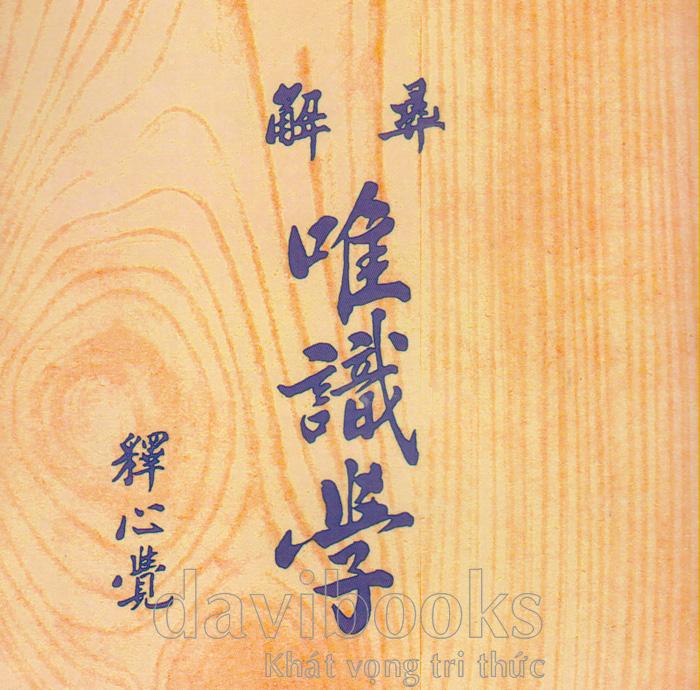 解
唯識學
釋心覺
davibooks
Khát vọng tri thức